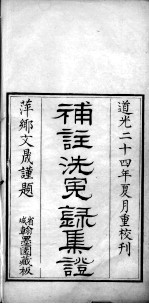 道光二十四年夏月重校刊
補註洗冤錄集證
萍鄉文晟謹題
省城翰墨園藏板